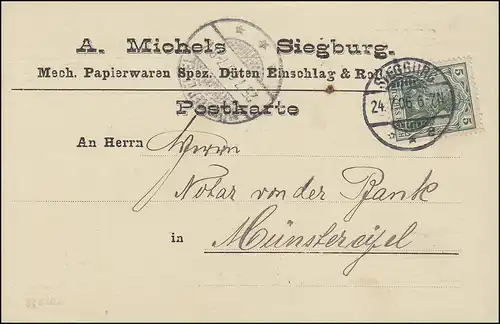 A. Michels Siegburg.
Mech. Papierwaren Spez. Düten Einschlag & Roll
Postkarte
SIEGBURG
24. 06. 6-7N.
* a
5 5
An Herrn Herrn
Notar von der Pfank
in Münstereifel